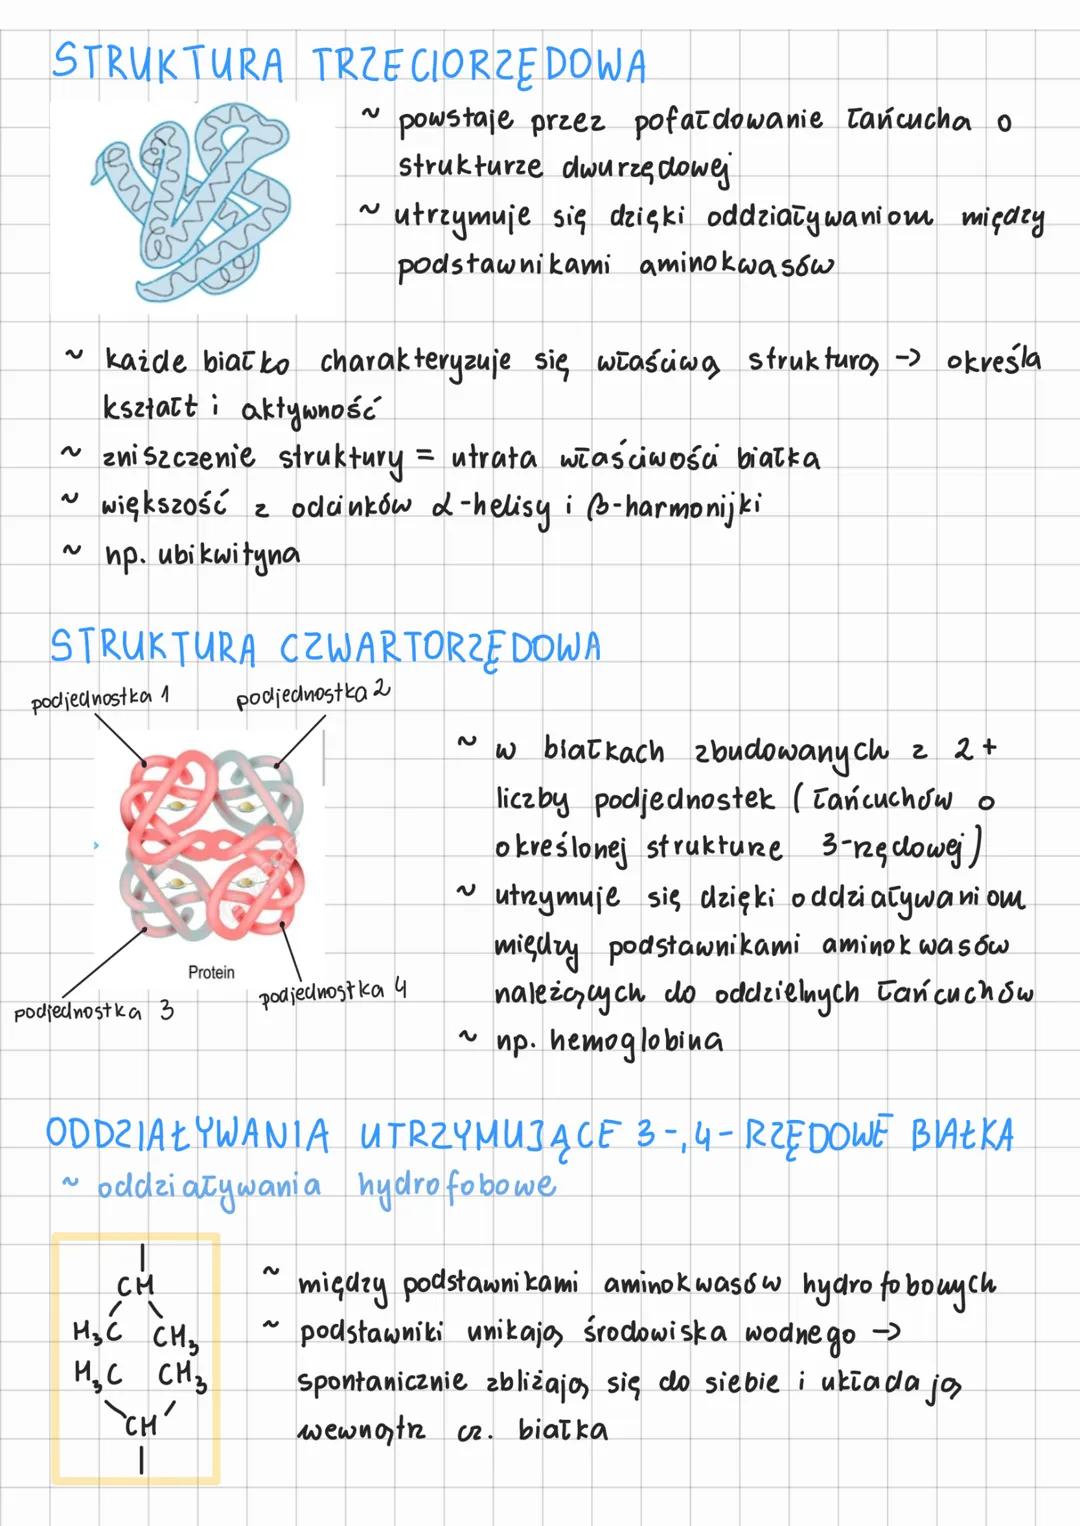 STRUKTURA TRZECIORZĘDOWA
~ powstaje przez pofałdowanie łańcucha o
strukturze dwurzędowej
~ utrzymuje się dzięki oddziaływaniom między
podstawnikami aminokwasów
~ każde białko charakteryzuje się właściwą strukturą -> określa
kształt i aktywność
~ zniszczenie struktury = utrata właściwości białka
~ większość z odcinków α-helisy i β-harmonijki
~ np. ubikwityna
STRUKTURA CZWARTORZĘDOWA
podjednostka 1
podjednostka 2
~ w białkach zbudowanych z 2+
liczby podjednostek (łańcuchów o
określonej strukturze 3-rzędowej)
~ utrzymuje się dzięki oddziaływaniom
między podstawnikami aminokwasów
należących do oddzielnych łańcuchów
~ np. hemoglobina
Protein
podjednostka 3
podjednostka 4
ODDZIAŁYWANIA UTRZYMUJĄCE 3-,4-RZĘDOWE BIAŁKA
~ oddziaływania hydrofobowe
CH
H₃C CH₃
H₃C CH₃
CH
~ między podstawnikami aminokwasów hydrofobowych
~ podstawniki unikają środowiska wodnego ->
spontanicznie zbliżają się do siebie i układają
wewnątrz cz. białka